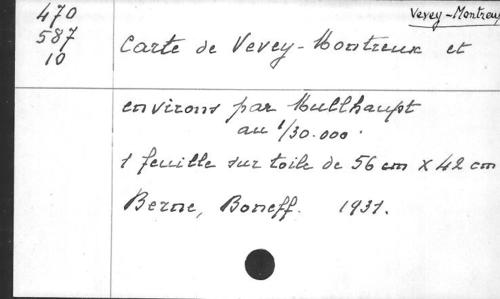 470
587
10
Vevey-Montreux
Carte de Vevey-Montreux et
environs par Mullhaupt
au 1/30.000.
1 feuille sur toile de 56 cm x 42 cm
Berne, Boneff. 1931.